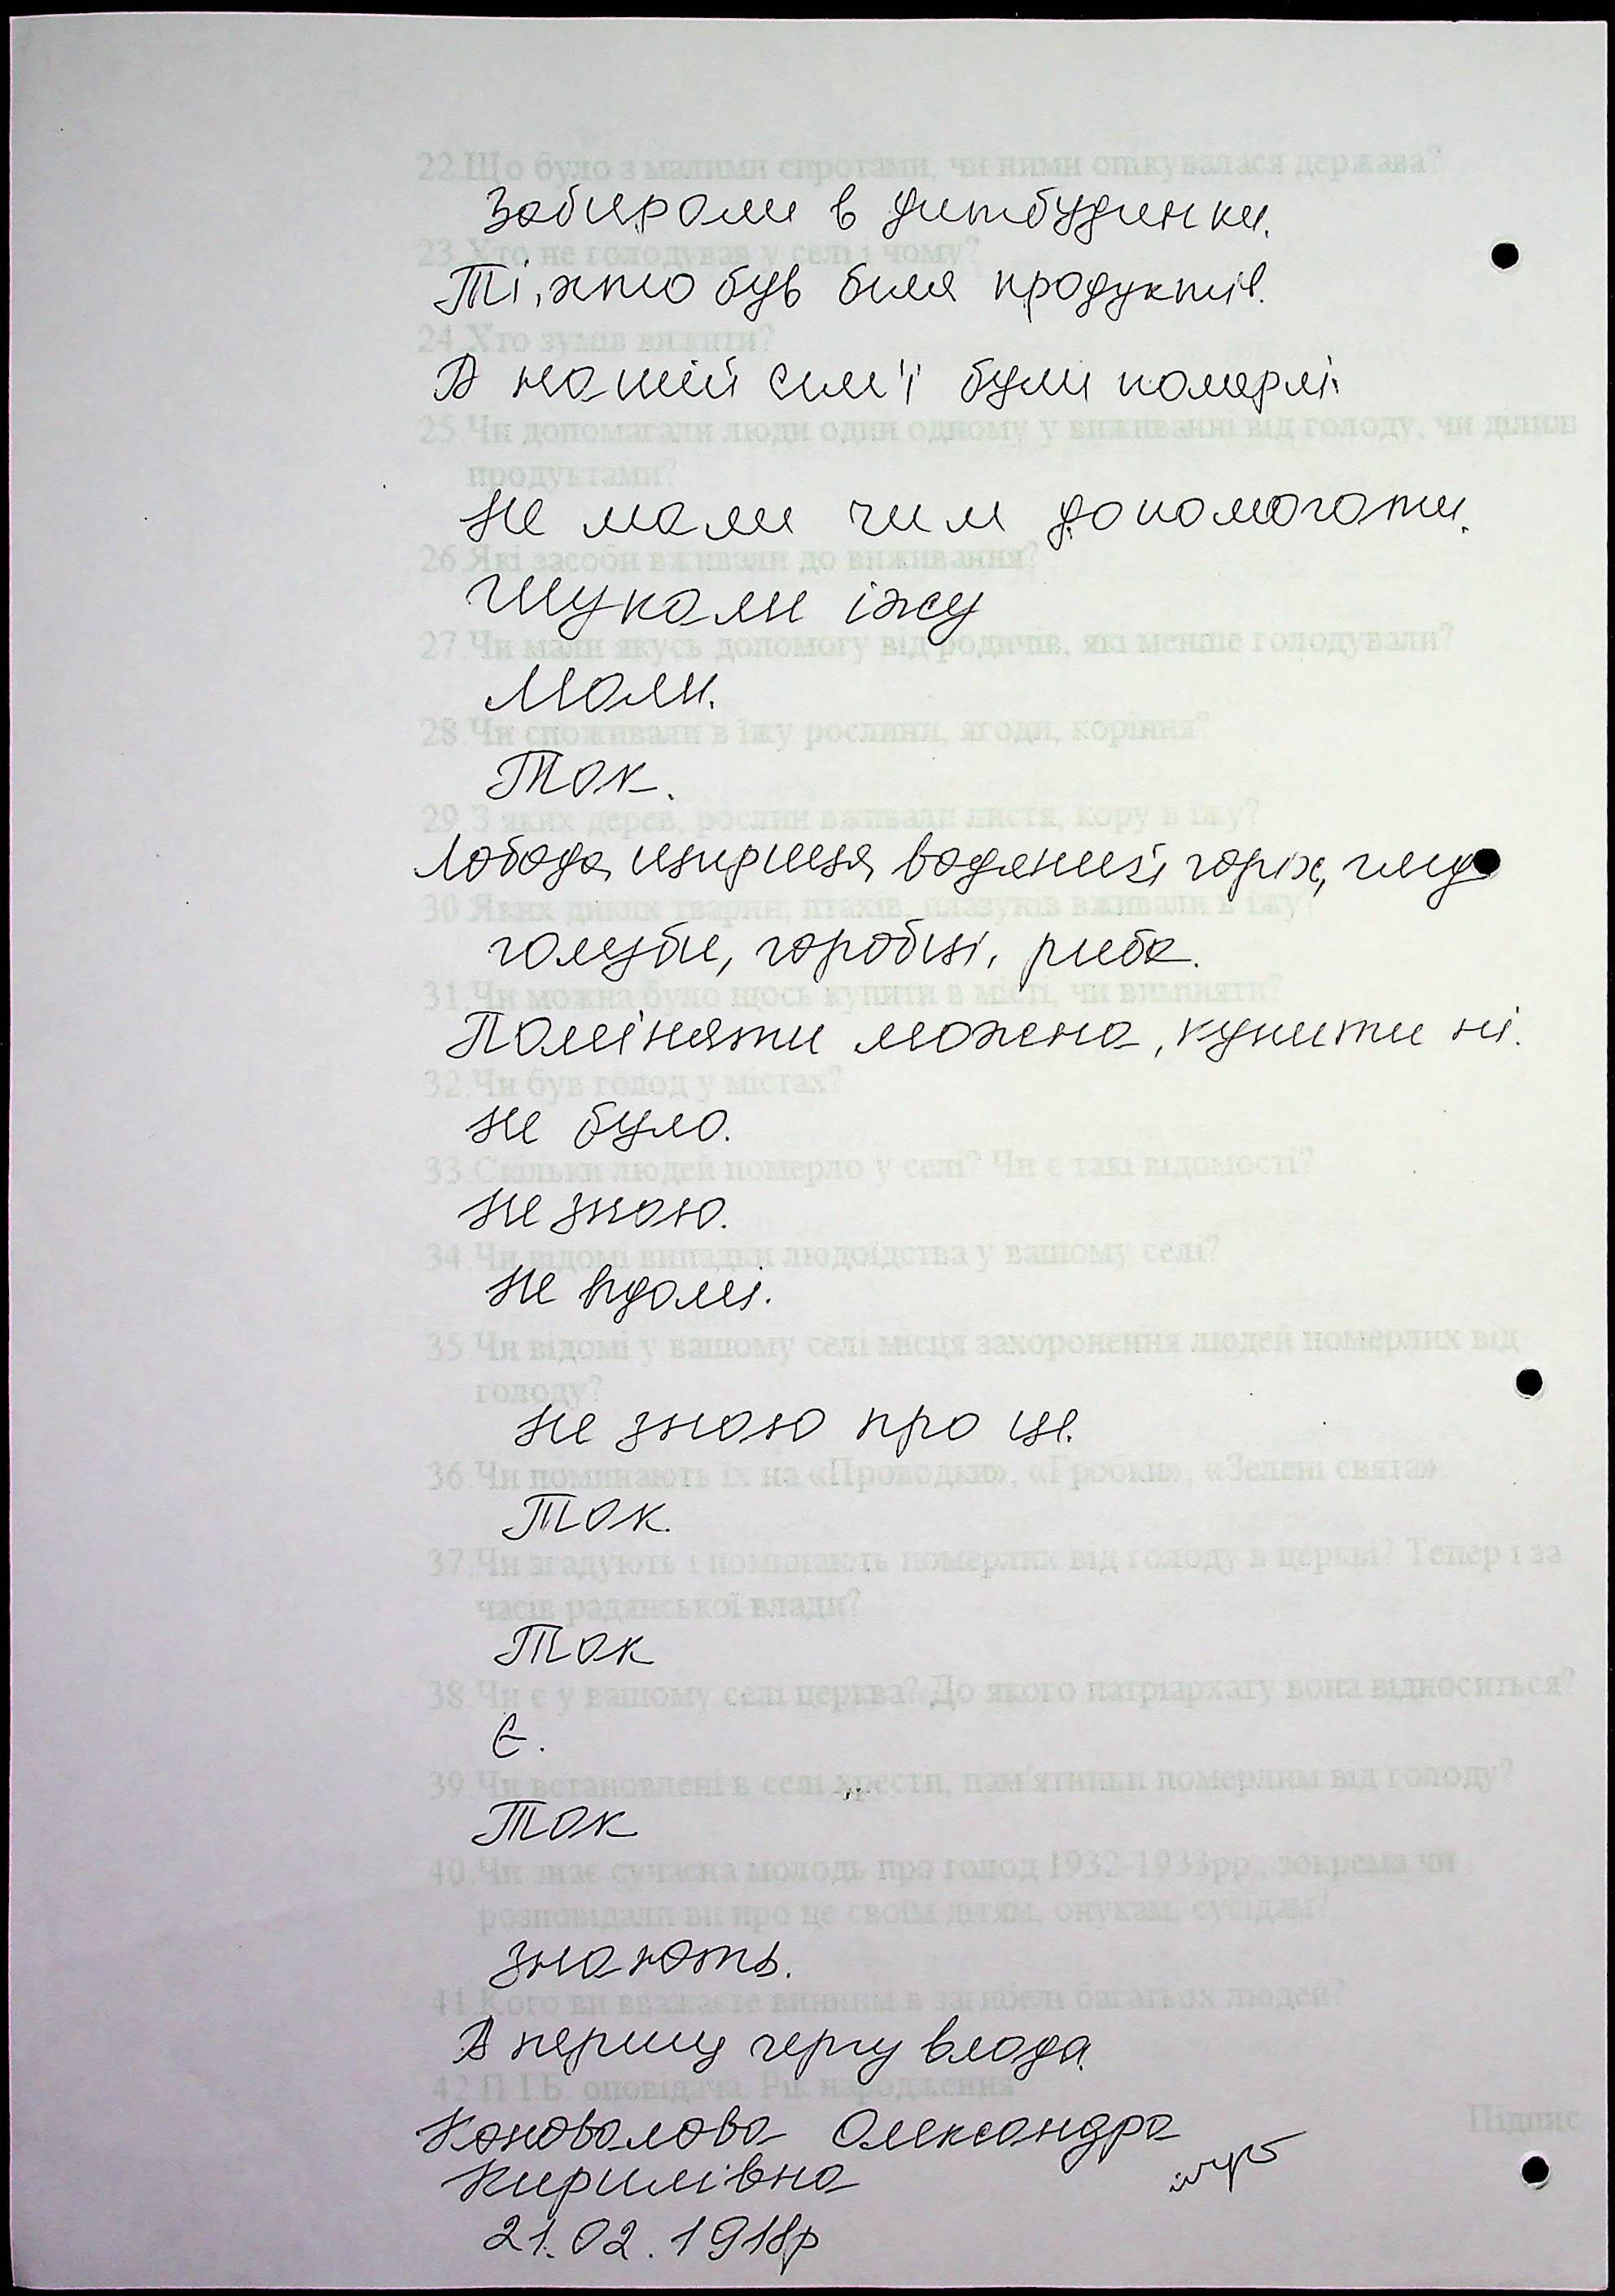 22.Що було з малими сиротами, чи ними опікувалася держава?
Забирали в дитбудинки.
23.Хто не голодував у селі і чому?
Ті, хто був біля продуктів.
24.Хто зумів вижити?
В нашій сім'ї були померлі
25.Чи допомагали люди один одному у виживанні від голоду, чи ділили
продуктами?
Не мали чим допомогати.
26.Які засоби вживали до виживання?
Шукали їжу
27.Чи мали якусь допомогу від родичів, які менше голодували?
Мали.
28.Чи споживали в їжу рослини, ягоди, коріння?
Так.
29.З яких дерев, рослин вживали листя, кору в їжу?
Лобода, водяний горіх,
30.Яких диких тварин, птахів, плазунів вживали в їжу?
голуби, горобці, риба.
31.Чи можна було щось купити в місті, чи виміняти?
Поміняти можна, купити ні.
32.Чи був голод у містах?
Не було.
33.Скільки людей померло у селі? Чи є такі відомості?
Не знаю.
34.Чи відомі випадки людоїдства у вашому селі?
Не відомі.
35.Чи відомі у вашому селі місця захоронення людей померлих від
голоду?
Не знаю про це.
36.Чи поминають їх на «Проводи», «Гробки», «Зелені свята».
Так.
37.Чи згадують і поминають померлих від голоду в церкві? Тепер і за
часів радянської влади?
Так
38.Чи є у вашому селі церква? До якого патріархату вона відноситься?
Є.
39.Чи встановлені в селі хрести, пам'ятники померлим від голоду?
Так
40.Чи знає сучасна молодь про голод 1932-1933рр., зокрема чи
розповідали ви про це своїм дітям, онукам, сусідам?
Знають.
41.Кого ви вважаєте винним в загибелі багатьох людей?
В першу чергу влада
42.П.І.Б. оповідача. Рік народження
Підпис
Коновалова Олександра
Кирилівна
21.02.1918р